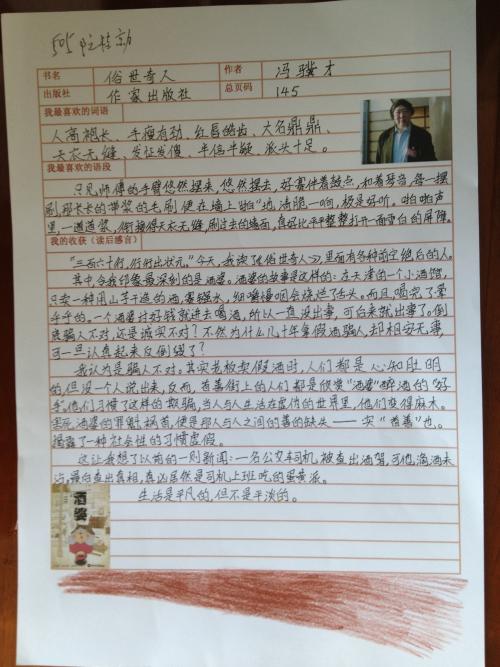 505
书名 俗世奇人 作者 冯骥才
出版社 作家出版社 总页码 145
我最喜欢的词语
人高袍长、手瘦有劲、红唇皓齿、大名鼎鼎、
天衣无缝、发怔发傻、半信半疑、派头十足。
我最喜欢的语段
只见师傅的手臂悠然摆来,悠然摆去,好赛伴着鼓点,和着琴音,每一摆
刷,那长长的带浆的毛刷便在墙上“啪”地清脆一响,极是好听。啪啪声
里,一道道浆,衔接得天衣无缝,刷过去的墙面,真好比平平整整打开一面雪白的屏障。
我的收获(读后感言)
“三百六十行,行行出状元。”今天,我读了《俗世奇人》,里面有各种前定绝后的人。
其中令我印象最深刻的是酒婆。酒婆的故事是这样的:在天津的一个小酒馆,
只卖一种用山芋造的酒,赛强水,细嘴慢咽会烧烂了舌头。而且喝完了晕
乎乎的。一个酒婆过好钱就进去喝酒,所以一直没出事,可后来就出事了。倒
底骗人不对,还是诚实不对?不然为什么几十年拿假酒骗人,却相安无事,
可一旦认真起来反倒毁了?
我认为是骗人不对。其实老板卖假酒时,人们都是心知肚明
的,但没一个人说出来,反而,首善街上的人们都是欣赏“酒婆”醉酒的“好
手”,他们习惯了这样的欺骗,当人与人生活在虚伪的世界里,他们变得麻木。
害死酒婆的罪魁祸首,便是那人与人之间的善的缺失——实“首善”也。
揭露了一种社会性的习惯虚假。
这让我想了以前的一则新闻:一名公交车司机,被查出酒驾,可他滴酒未
沾,最后查出真相,真凶居然是司机上班吃的蛋黄派。
生活是平凡的,但不是平淡的。
酒婆